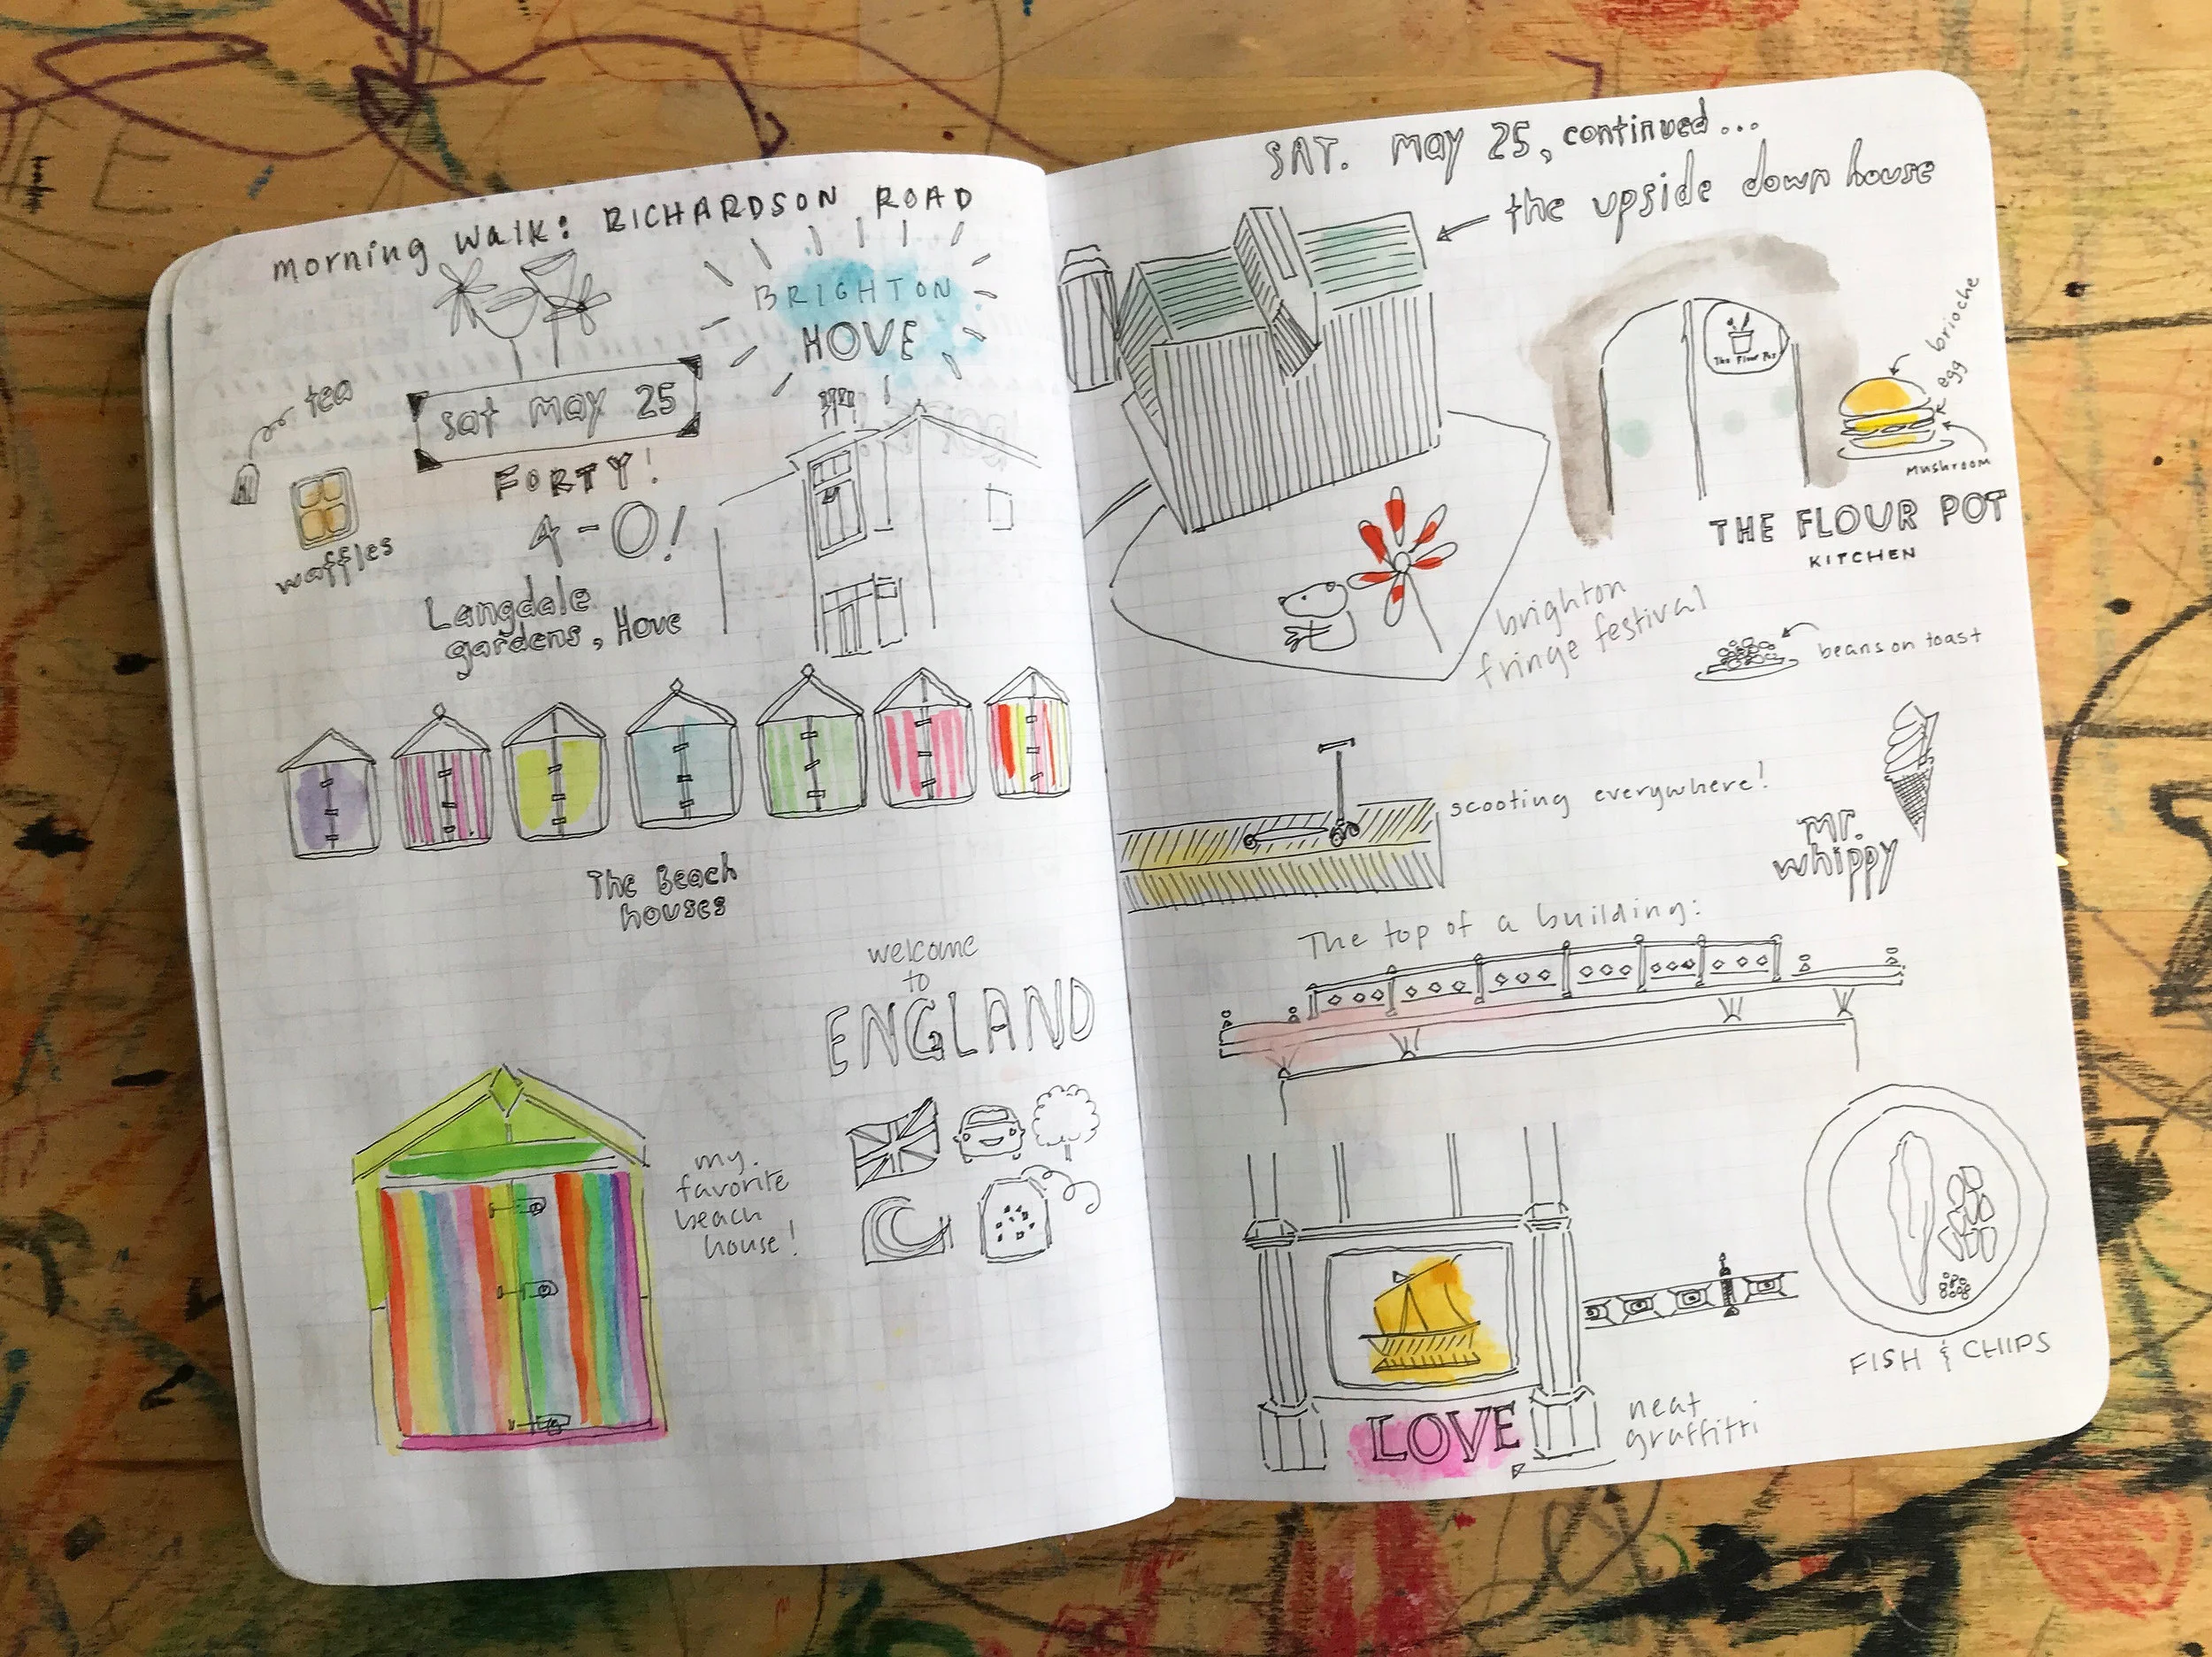 morning walk: RICHARDSON ROAD
BRIGHTON
HOVE
tea
sat may 25
FORTY!
4-0!
waffles
Langdale
gardens, Hove
The Beach
houses
welcome
to
ENGLAND
my
favorite
beach
house!
SAT. may 25, continued...
the upside down house
The Flour Pot
brioche
egg
mushroom
THE FLOUR POT
KITCHEN
brighton
fringe festival
beans on toast
scooting everywhere!
mr.
whippy
The top of a building:
FISH & CHIPS
LOVE
neat
graffitti